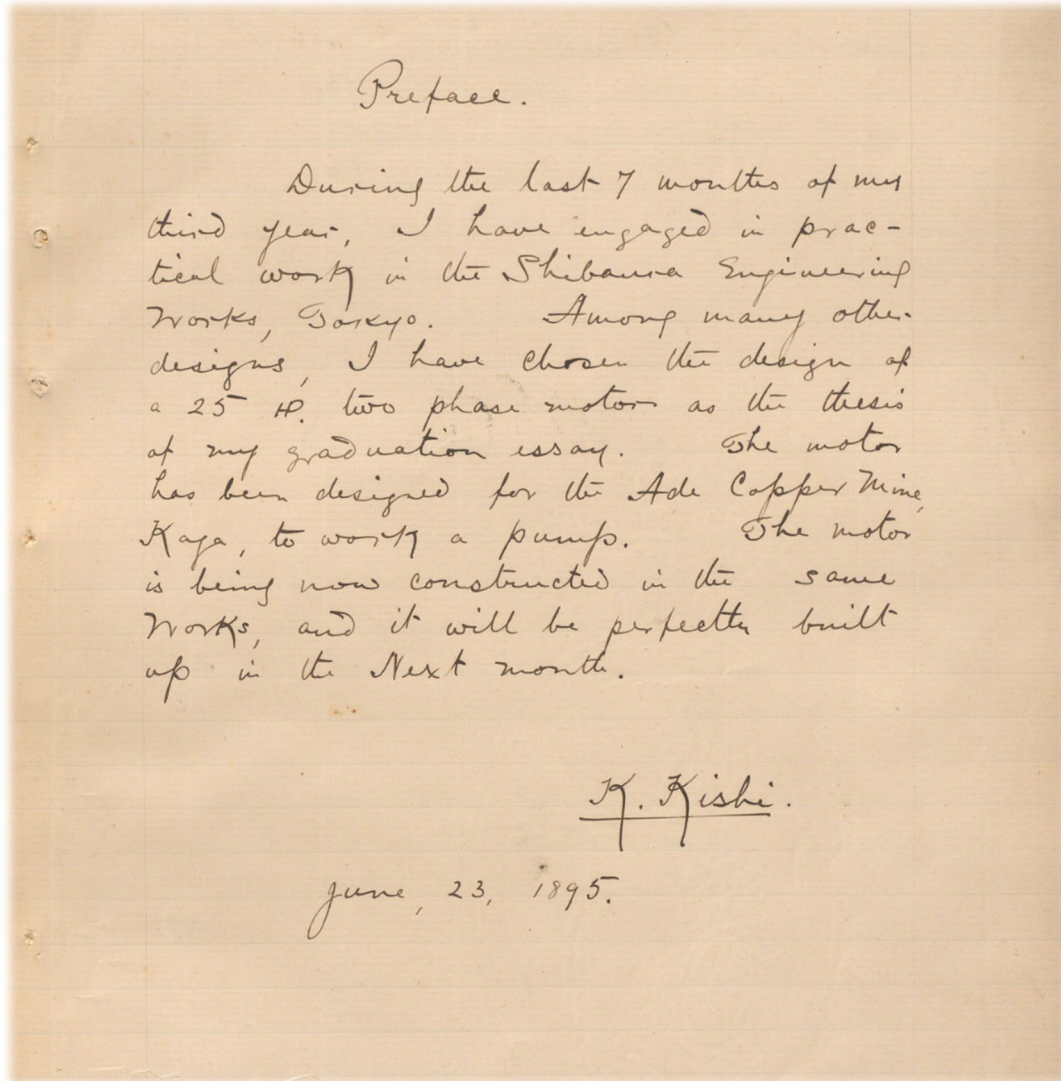 Preface.
During the last 7 months of my
third year, I have engaged in prac-
tical work in the Shibaura Engineering
Works, Tokyo. Among many other
designs, I have chosen the design of
a 25 HP. two phase motor as the thesis
of my graduation essay. The motor
has been designed for the Ade Copper Mine,
Kaga, to work a pump. The motor
is being now constructed in the same
Works, and it will be perfectly built
up in the Next month.
K. Kishi.
June, 23, 1895.